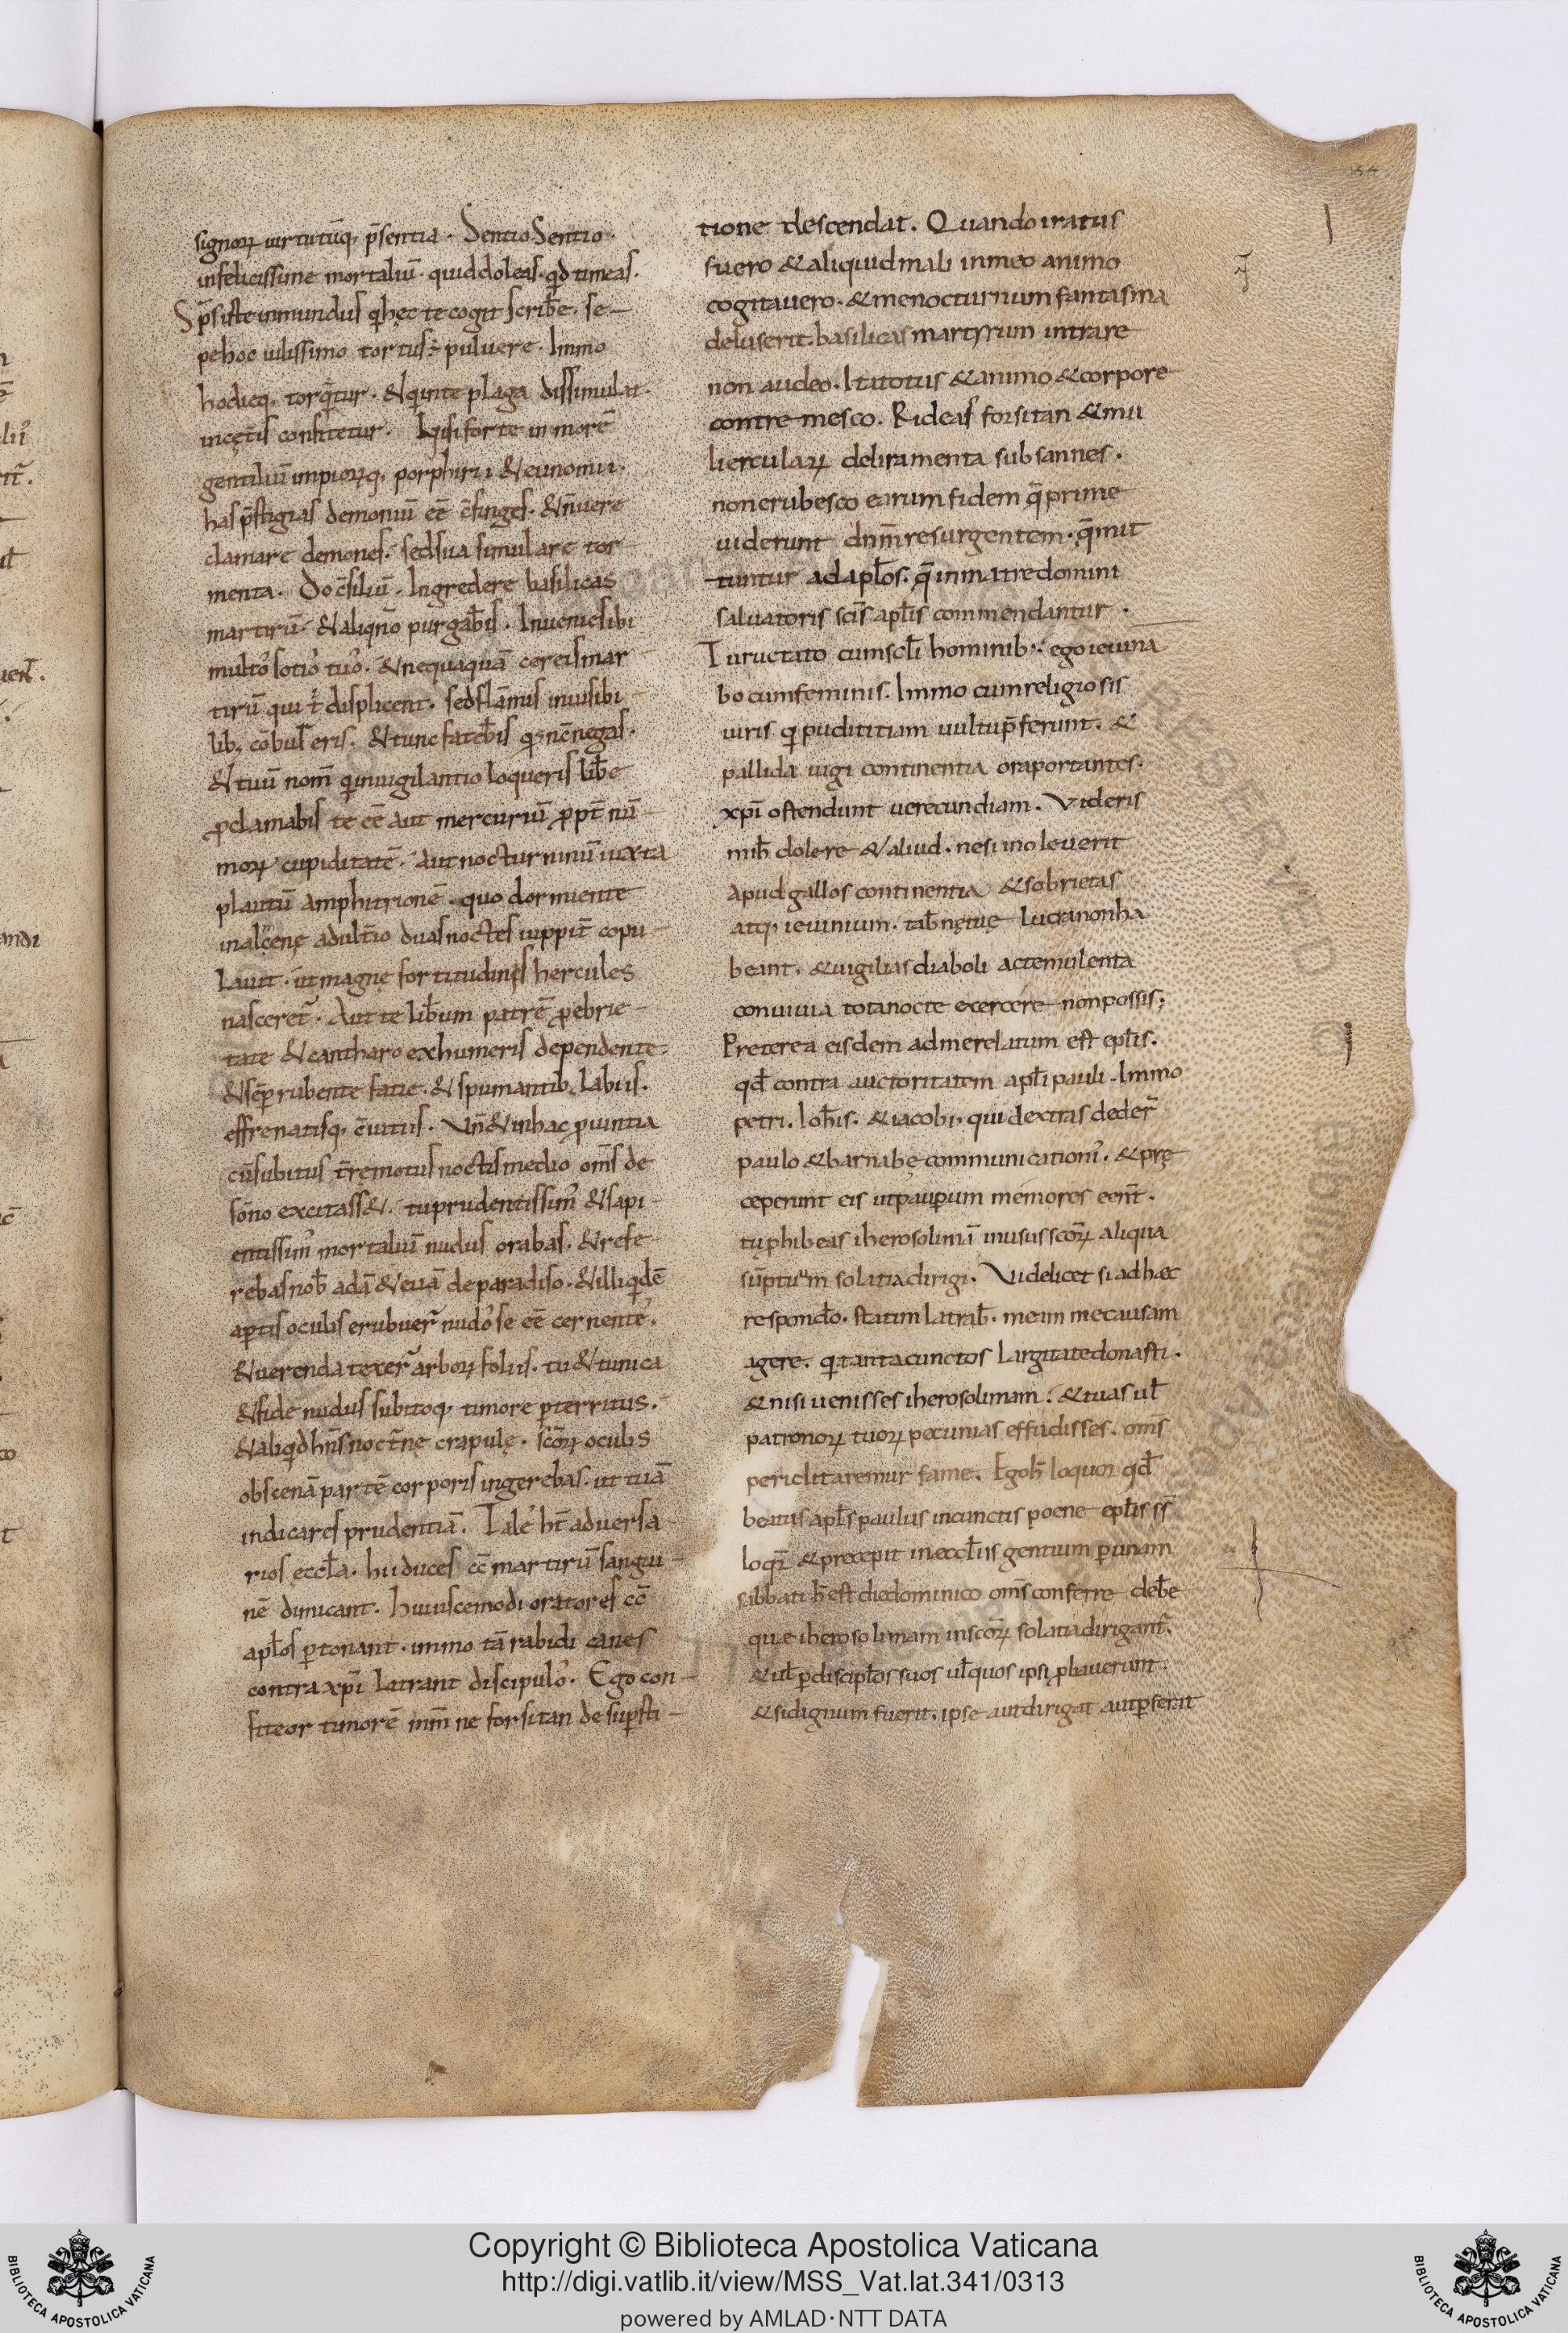 signoꝝ uirtutūq; p̄sentia. Sentio Sentio.
infelicissime mortaliū. quid doleas. qd timeas.
Sp̄s iste inmundus q hęc te cogit scrib̄e. se
pe hoc uilissimo tortus ÷ puluere. Immo
hodieq; torq̄tur. & q in te plaga dissimulat.
in cęt̄is confitetur. Nisi forte in morē
gentiliū impioꝝq; porphirii & eunomii.
has p̄stigias demoniū eē c̄finges. & n̄ uere
clamare demones. sed sua simulare tor
menta. Do c̄siliū. Ingredere basilicas
martirū. & aliqn̄o purgab̄is. Inuenies ibi
multo᾽ sotio᾽ tuo᾽. & nequaquā cereis mar
tirū qui t᾽ displicent. sed flāmis inuisibi
lib; cōbul̄ eris. & tunc fateb̄is q nc̄ negas.
& tuū nom̄ q in uigilantio loqueris lib̄e
ꝓclamabis te eē aut mercuriū ꝓpt̄ nū
moꝝ cupiditatē. Aut nocturninū iuxta
plautū amphitrionē. quo dormiente
in alcęne adult̄io duas noctes iuppit̄ copu
lauit. ut magnę fortitudinis hercules
nasceret᾽. Aut te lib̄um patrē ꝓ ebrie
tate & cantharo ex humeris dependente.
& sēp rubente fatie. & spumantib; labiis.
effrenatisq; c̄uitiis. Vn̄ & in hac ꝓuintia
cū subitus t̄ręmotus noctis medio om̄s de
sōno excitass&. tu prudentissim᾽ & sapi
entissim᾽ mortaliū nudus orabas. & refe
rebas nob̄ adā & euā de paradiso. & illi qdē
aꝑtis oculis erubuer̄ nudo᾽ se eē cernente᾽.
& uerenda texer̄ arboꝝ foliis. tu & tunica
& fide nudus subitoq; timore ꝑterritus.
& aliqd hn̄s noct̄nę crapulę. sc̄oꝝ oculis
obscenā partē corporis ingerebas. ut tuā
indicares prudentiā. Tale᾽ ht̄ aduersa
rios ęccl̄a. hii duces cc̄ martirū sangui
nē dimicant. huiuscemodi oratores cc̄
apl̄os ꝑtonant. immo tā rabidi canes
contra xp̄i latrant discipulo᾽. Ego con
fiteor timorē mm̄ ne forsitan de suꝑsti
tione descendat. Quando iratus
fuero & aliquid mali in meo animo
cogitauero. & me nocturnum fantasma
deluserit. basilicas martyrum intrare
non audeo. Ita totus & animo & corpore
contremesco. Rideas forsitan & mu
liercularꝝ deliramenta subsannes.
non erubesco earum fidem q̄ prime
uiderunt dn̄m resurgentem. q̄ mit
tuntur ad apl̄os. q̄ in matre domini
saluatoris sc̄is apl̄is commendantur.
Tu ructato cum scl̄i hominib;. ego ieiuna
bo cum feminis. Immo cum religiosis
uiris q pudititiam uultu p̄ferunt. &
pallida iugi continentia ora portantes.
xp̄i ostendunt uerecundiam. Videris
mih̄ dolere & aliud. ne si inoleuerit
apud gallos continentia & sobrietas
atq; ieiunium. tab̄nę tuę lucra non ha
beant. & uigilias diaboli ac temulenta
conuiuia tota nocte exercere non possis;
Preterea eisdem ad me relatum est epl̄is.
qd̄ contra auctoritatem apl̄i pauli. Immo
petri. Ioh̄is. & iacobi. qui dextras deder̄
paulo & barnabę communication᾽. & prę
ceperunt eis ut pauꝑum memores eent̄.
tu ꝓhibeas iherosolimā in usus sc̄oꝝ aliqua
sūptuum solatia dirigi. Videlicet si ad hæc
respondo᾽. statim latrab̄. meum me causam
agere. q tanta cunctos largitate donasti.
& nisi uenisses iherosolimam. & tuas ul̄
patronoꝝ tuoꝝ pecunias effudisses. om̄s
periclitaremur fame. Ego h̄ loquor qd̄
beatus apl̄s paulus in cunctis poene epl̄is ss̄
loq᾽r & precepit in ęccl̄iis gentium ꝑ unam
sabbati h̄ est die dominico om̄s conferre deb̄e
quæ iherosolimam in sc̄oꝝ solatia dirigant᾽.
& ul̄ ꝑ discipl̄os suos ul̄ quos ipsi ꝓbauerunt.
& si dignum fuerit. ipse aut dirigat aut ꝑferat
Copyright © Biblioteca Apostolica Vaticana
http://digi.vatlib.it/view/MSS_Vat.lat.341/0313
powered by AMLAD·NTT DATA
BIBLIOTECA APOSTOLICA VATICANA
BIBLIOTECA APOSTOLICA VATICANA